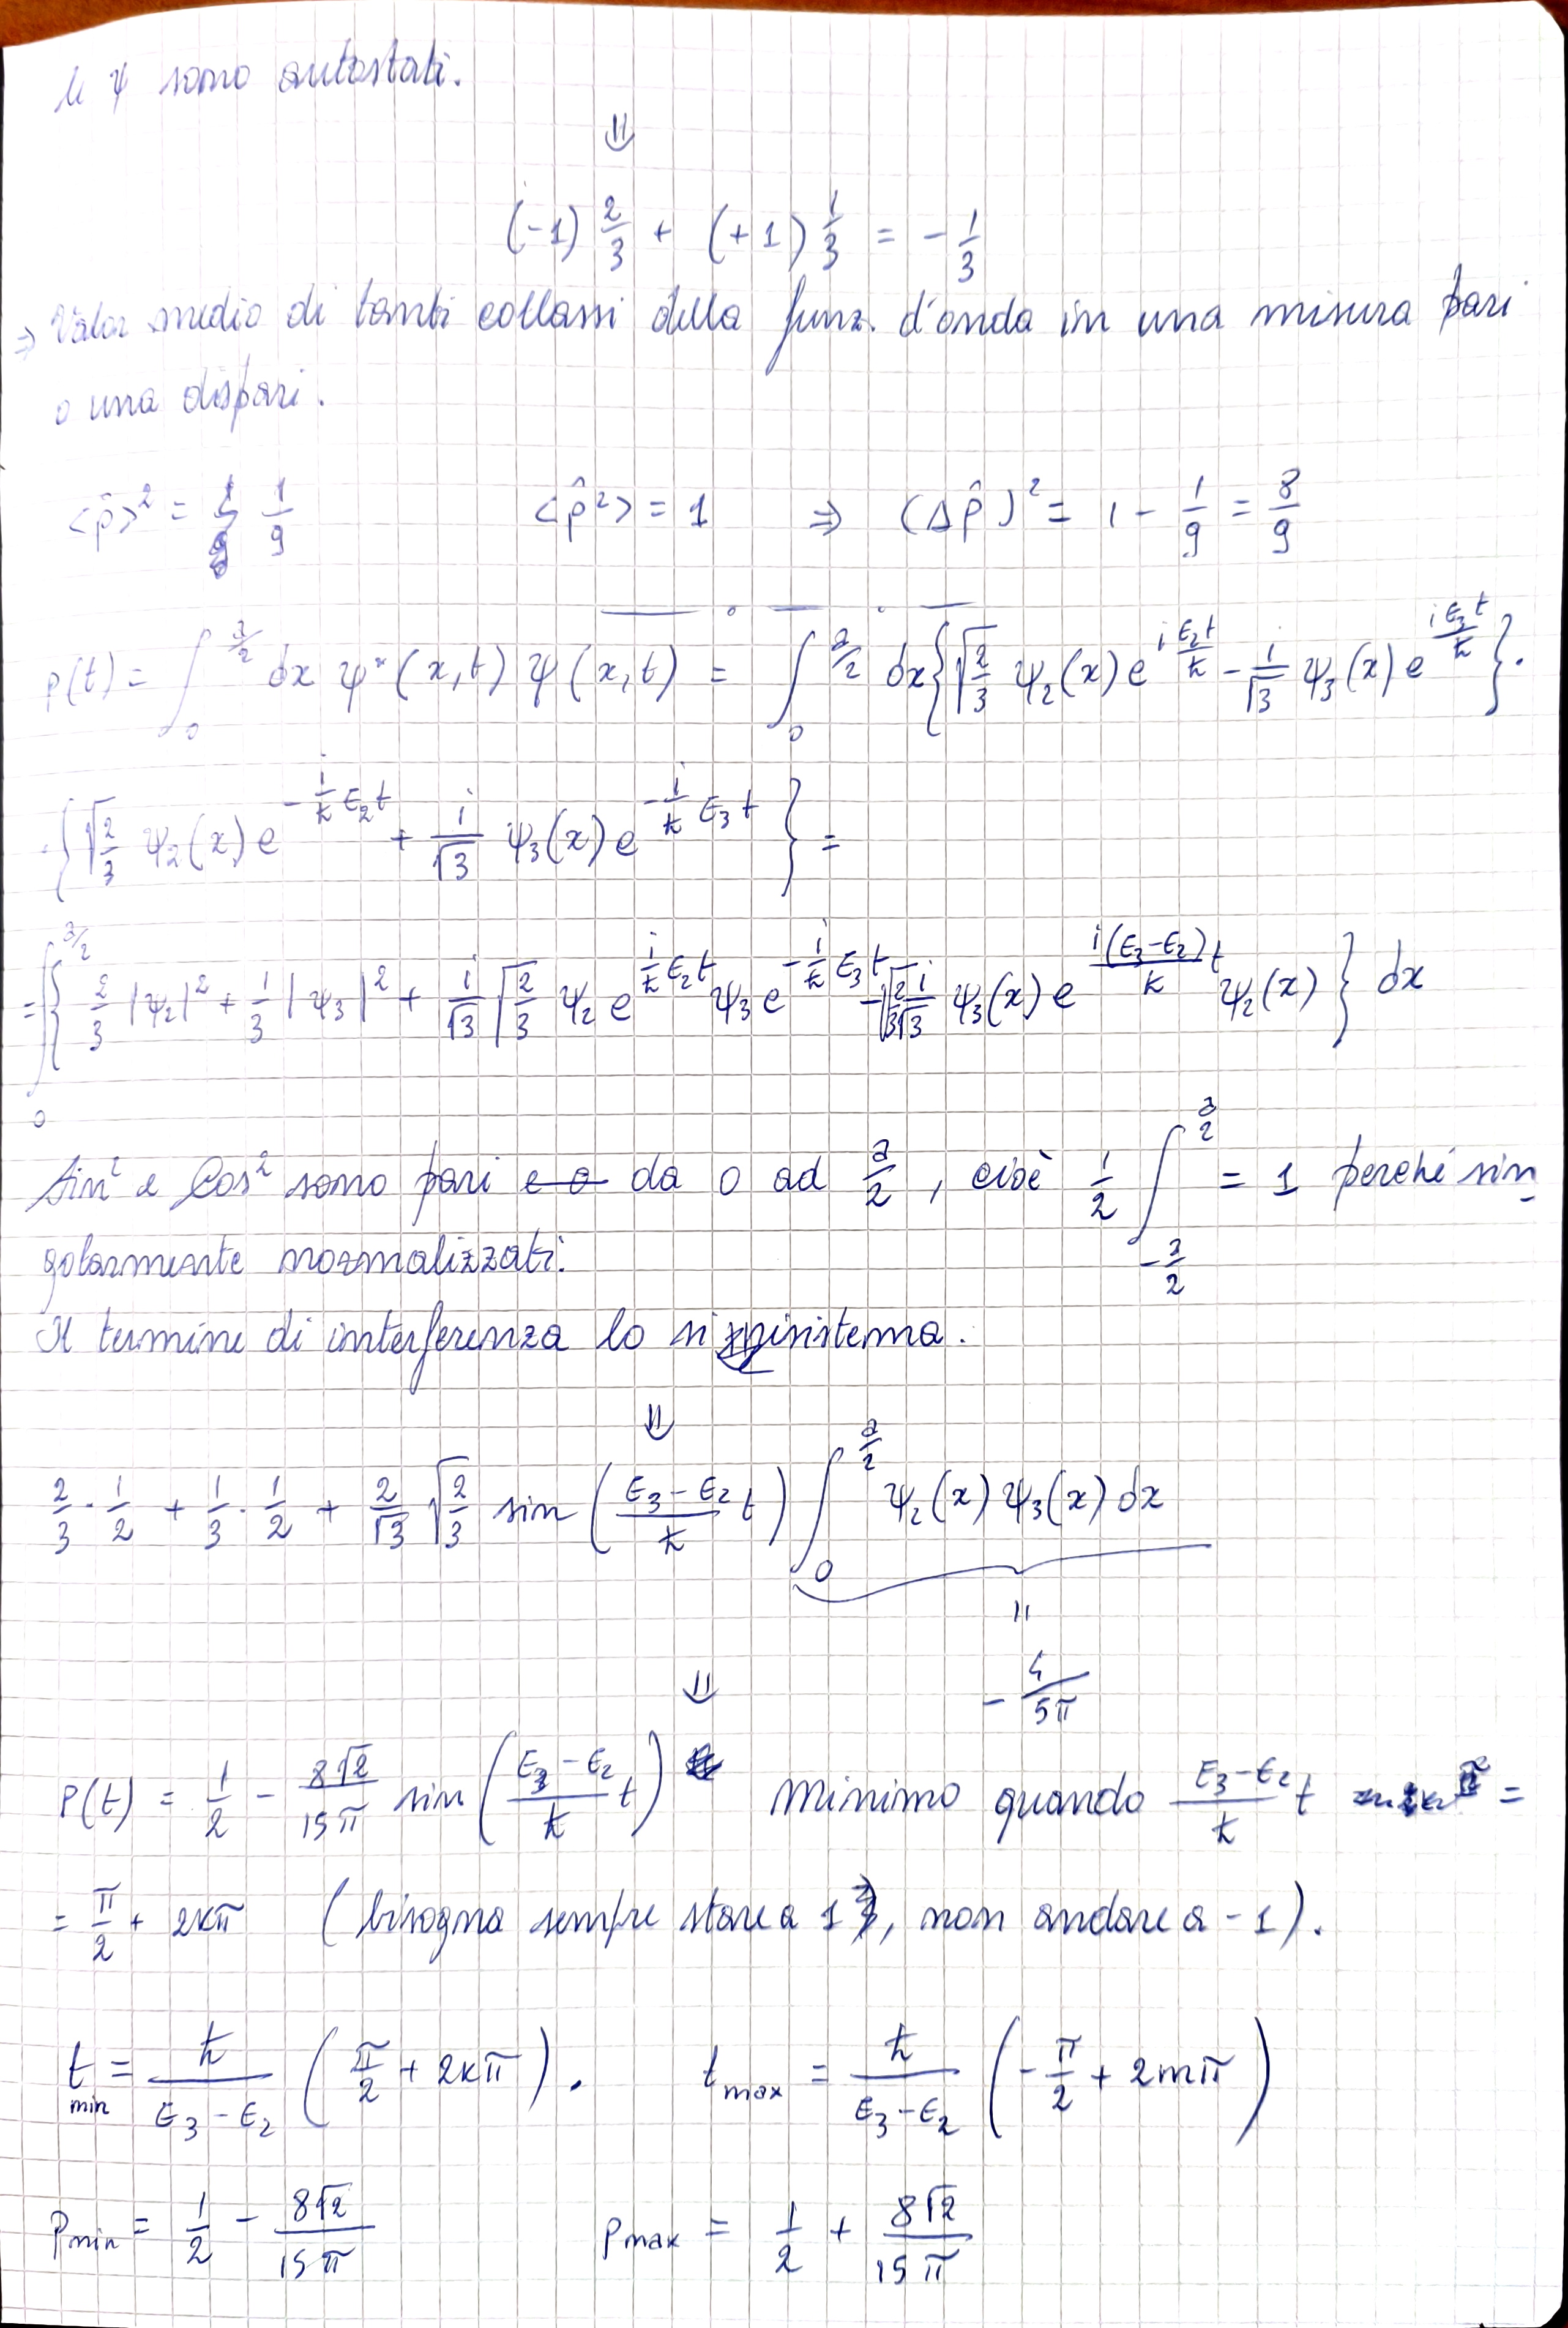 le ψ sono autostati.
⇓
(-1) 2/3 + (+1) 1/3 = - 1/3
⇒ Valor medio di tanti collassi della funz. d'onda in una misura pari
o una dispari.
<p̂>² = 1/9 <p̂²> = 1 ⇒ (Δp̂)² = 1 - 1/9 = 8/9
P(t) = ∫₀^{a/2} dx ψ*(x,t) ψ(x,t) = ∫₀^{a/2} dx {√(2/3) ψ₂(x) e^{i E₂t/ħ} - i/√3 ψ₃(x) e^{i E₃t/ħ}} ·
· {√(2/3) ψ₂(x) e^{-i/ħ E₂t} + i/√3 ψ₃(x) e^{-i/ħ E₃t}} =
= ∫₀^{a/2} {2/3 |ψ₂|² + 1/3 |ψ₃|² + i/√3 √(2/3) ψ₂ e^{i/ħ E₂t} ψ₃ e^{-i/ħ E₃t} - √(2/3) i/√3 ψ₃(x) e^{i(E₃-E₂)t/ħ} ψ₂(x)} dx
Sin² e Cos² sono pari e da 0 ad a/2, cioè 1/2 ∫_{-a/2}^{a/2} = 1 perché sin
golarmente normalizzati.
Il termine di interferenza lo si risistema.
⇓
2/3 · 1/2 + 1/3 · 1/2 + 2/√3 √(2/3) sin((E₃-E₂)/ħ t) ∫₀^{a/2} ψ₂(x) ψ₃(x) dx
=
⇓ - 4/5π
P(t) = 1/2 - 8√2/15π sin((E₃-E₂)/ħ t) Minimo quando (E₃-E₂)/ħ t =
= π/2 + 2kπ (bisogna sempre stare a 1, non andare a -1).
t_min = ħ/(E₃-E₂) (π/2 + 2kπ). t_max = ħ/(E₃-E₂) (-π/2 + 2mπ)
P_min = 1/2 - 8√2/15π P_max = 1/2 + 8√2/15π